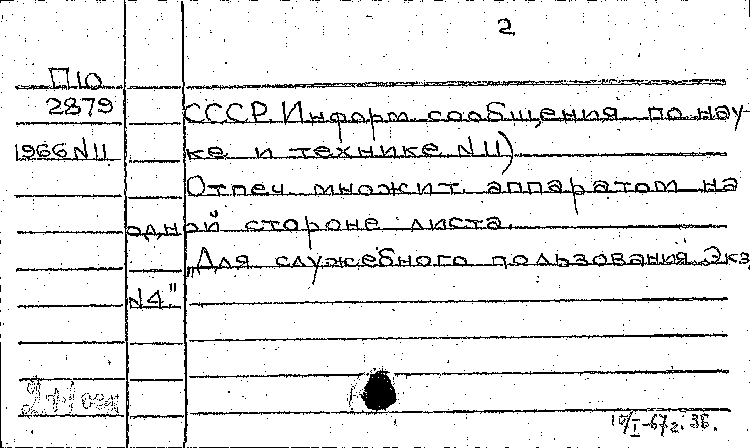 2
П10
2879
1966 N11
СССР. Информ. сообщения по нау-
ке и технике. N11)
Отпеч. множит. аппаратом на
одной стороне листа.
„Для служебного пользования. Экз.
N4."
10/I-67г. 36.